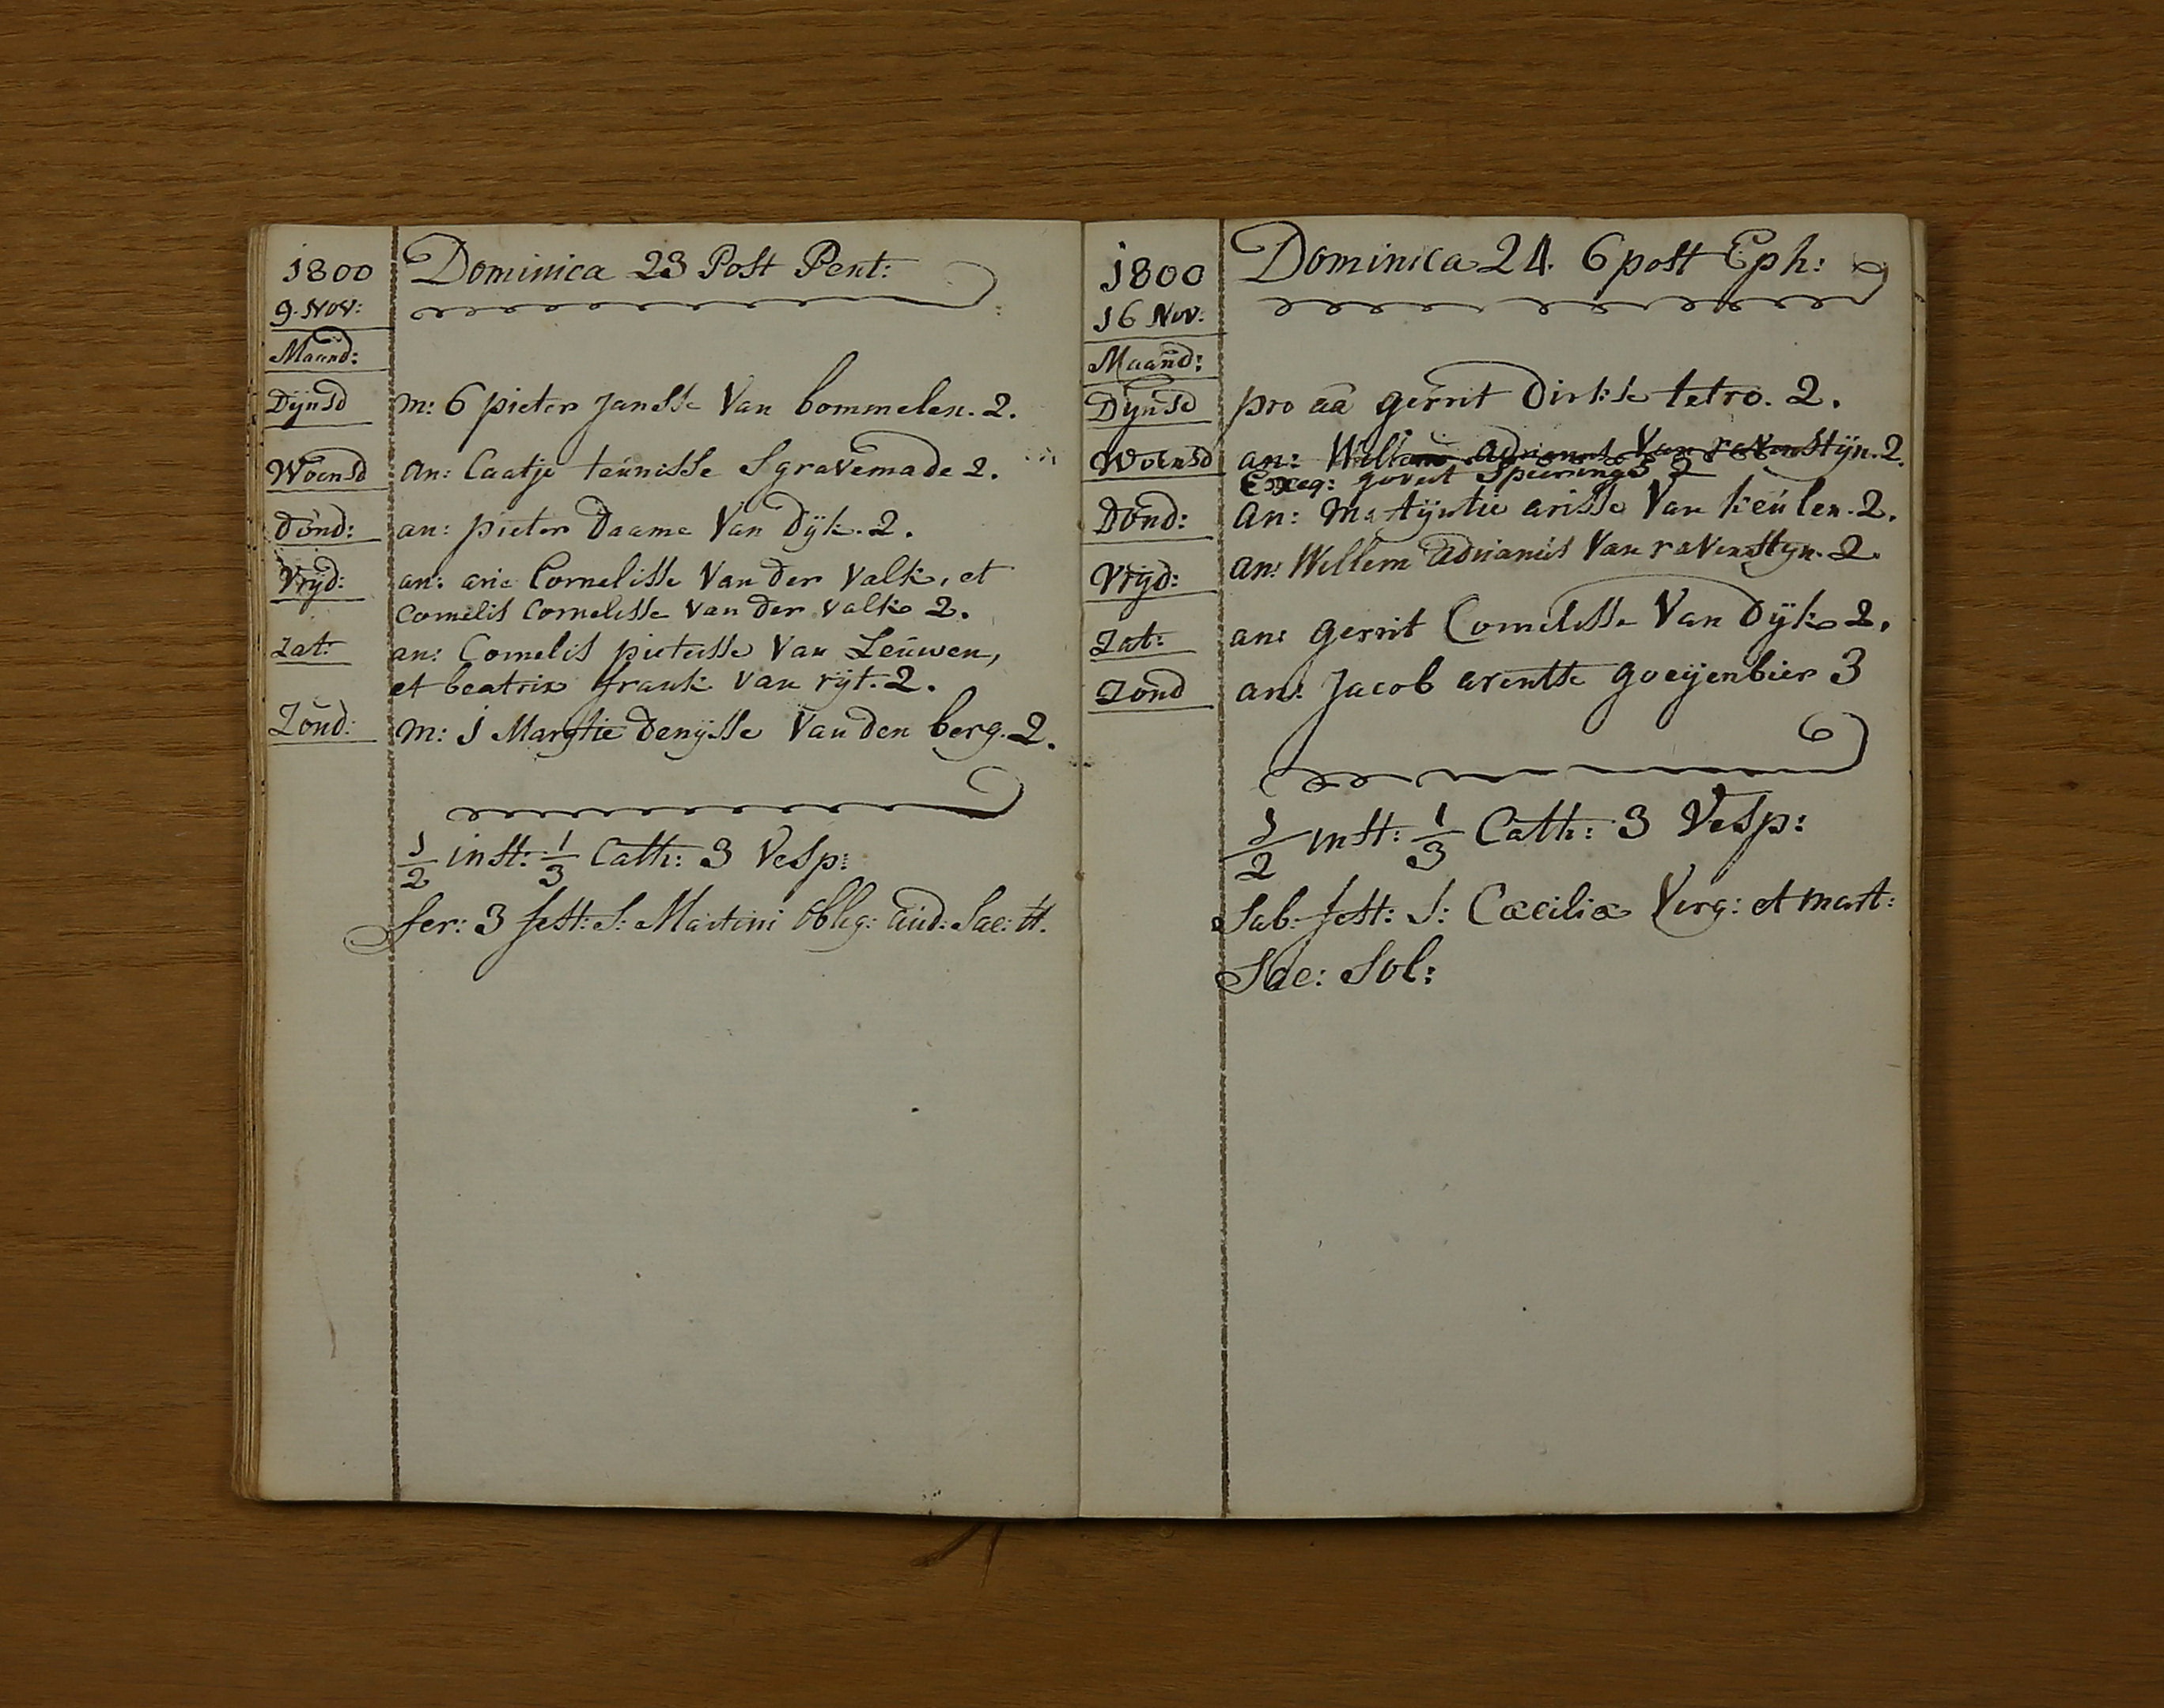 1800
9. Nov:
Dominica 23 Post Pent:
Maand:
Dijnsd m: 6 pieter Jansse Van bommelen. 2.
Woensd An: Caatje teunisse Sgravemade 2.
Dond: an: pieter Daame Van Dijk. 2.
Vrijd: an: arie Cornelisse Van der Valk, et
Cornelis Cornelisse Van der Valk 2.
Zat: an: Cornelis pieterse Van Leuwen,
et beatrix frank van rijt. 2.
Zond: m: 1 Marytie Denijsse Van den berg. 2.
1/2 inst: 1/3 Cath: 3 Vesp:
fer: 3 fest: S: Martini Oblig: aud: Sac: tt.
1800
16 Nov:
Dominica 24. 6 post Eph:
Maand:
Dijnsd pro aa gerrit Dirkse tetro. 2.
Woensd an: Willem adrianus Van ravenstijn. 2.
Exeq: govert Spierings 2
Dond: An: Martijntie arisse Van keulen. 2.
Vrijd: an: Willem adrianus Van ravenstijn. 2.
Zat: an: gerrit Cornelisse Van Dijk 2.
Zond an: Jacob arentse goeijenbier 3
1/2 inst: 1/3 Cath: 3 Vesp:
Sab: fest: S: Cæciliæ Virg: et mart:
Sac: Sol: